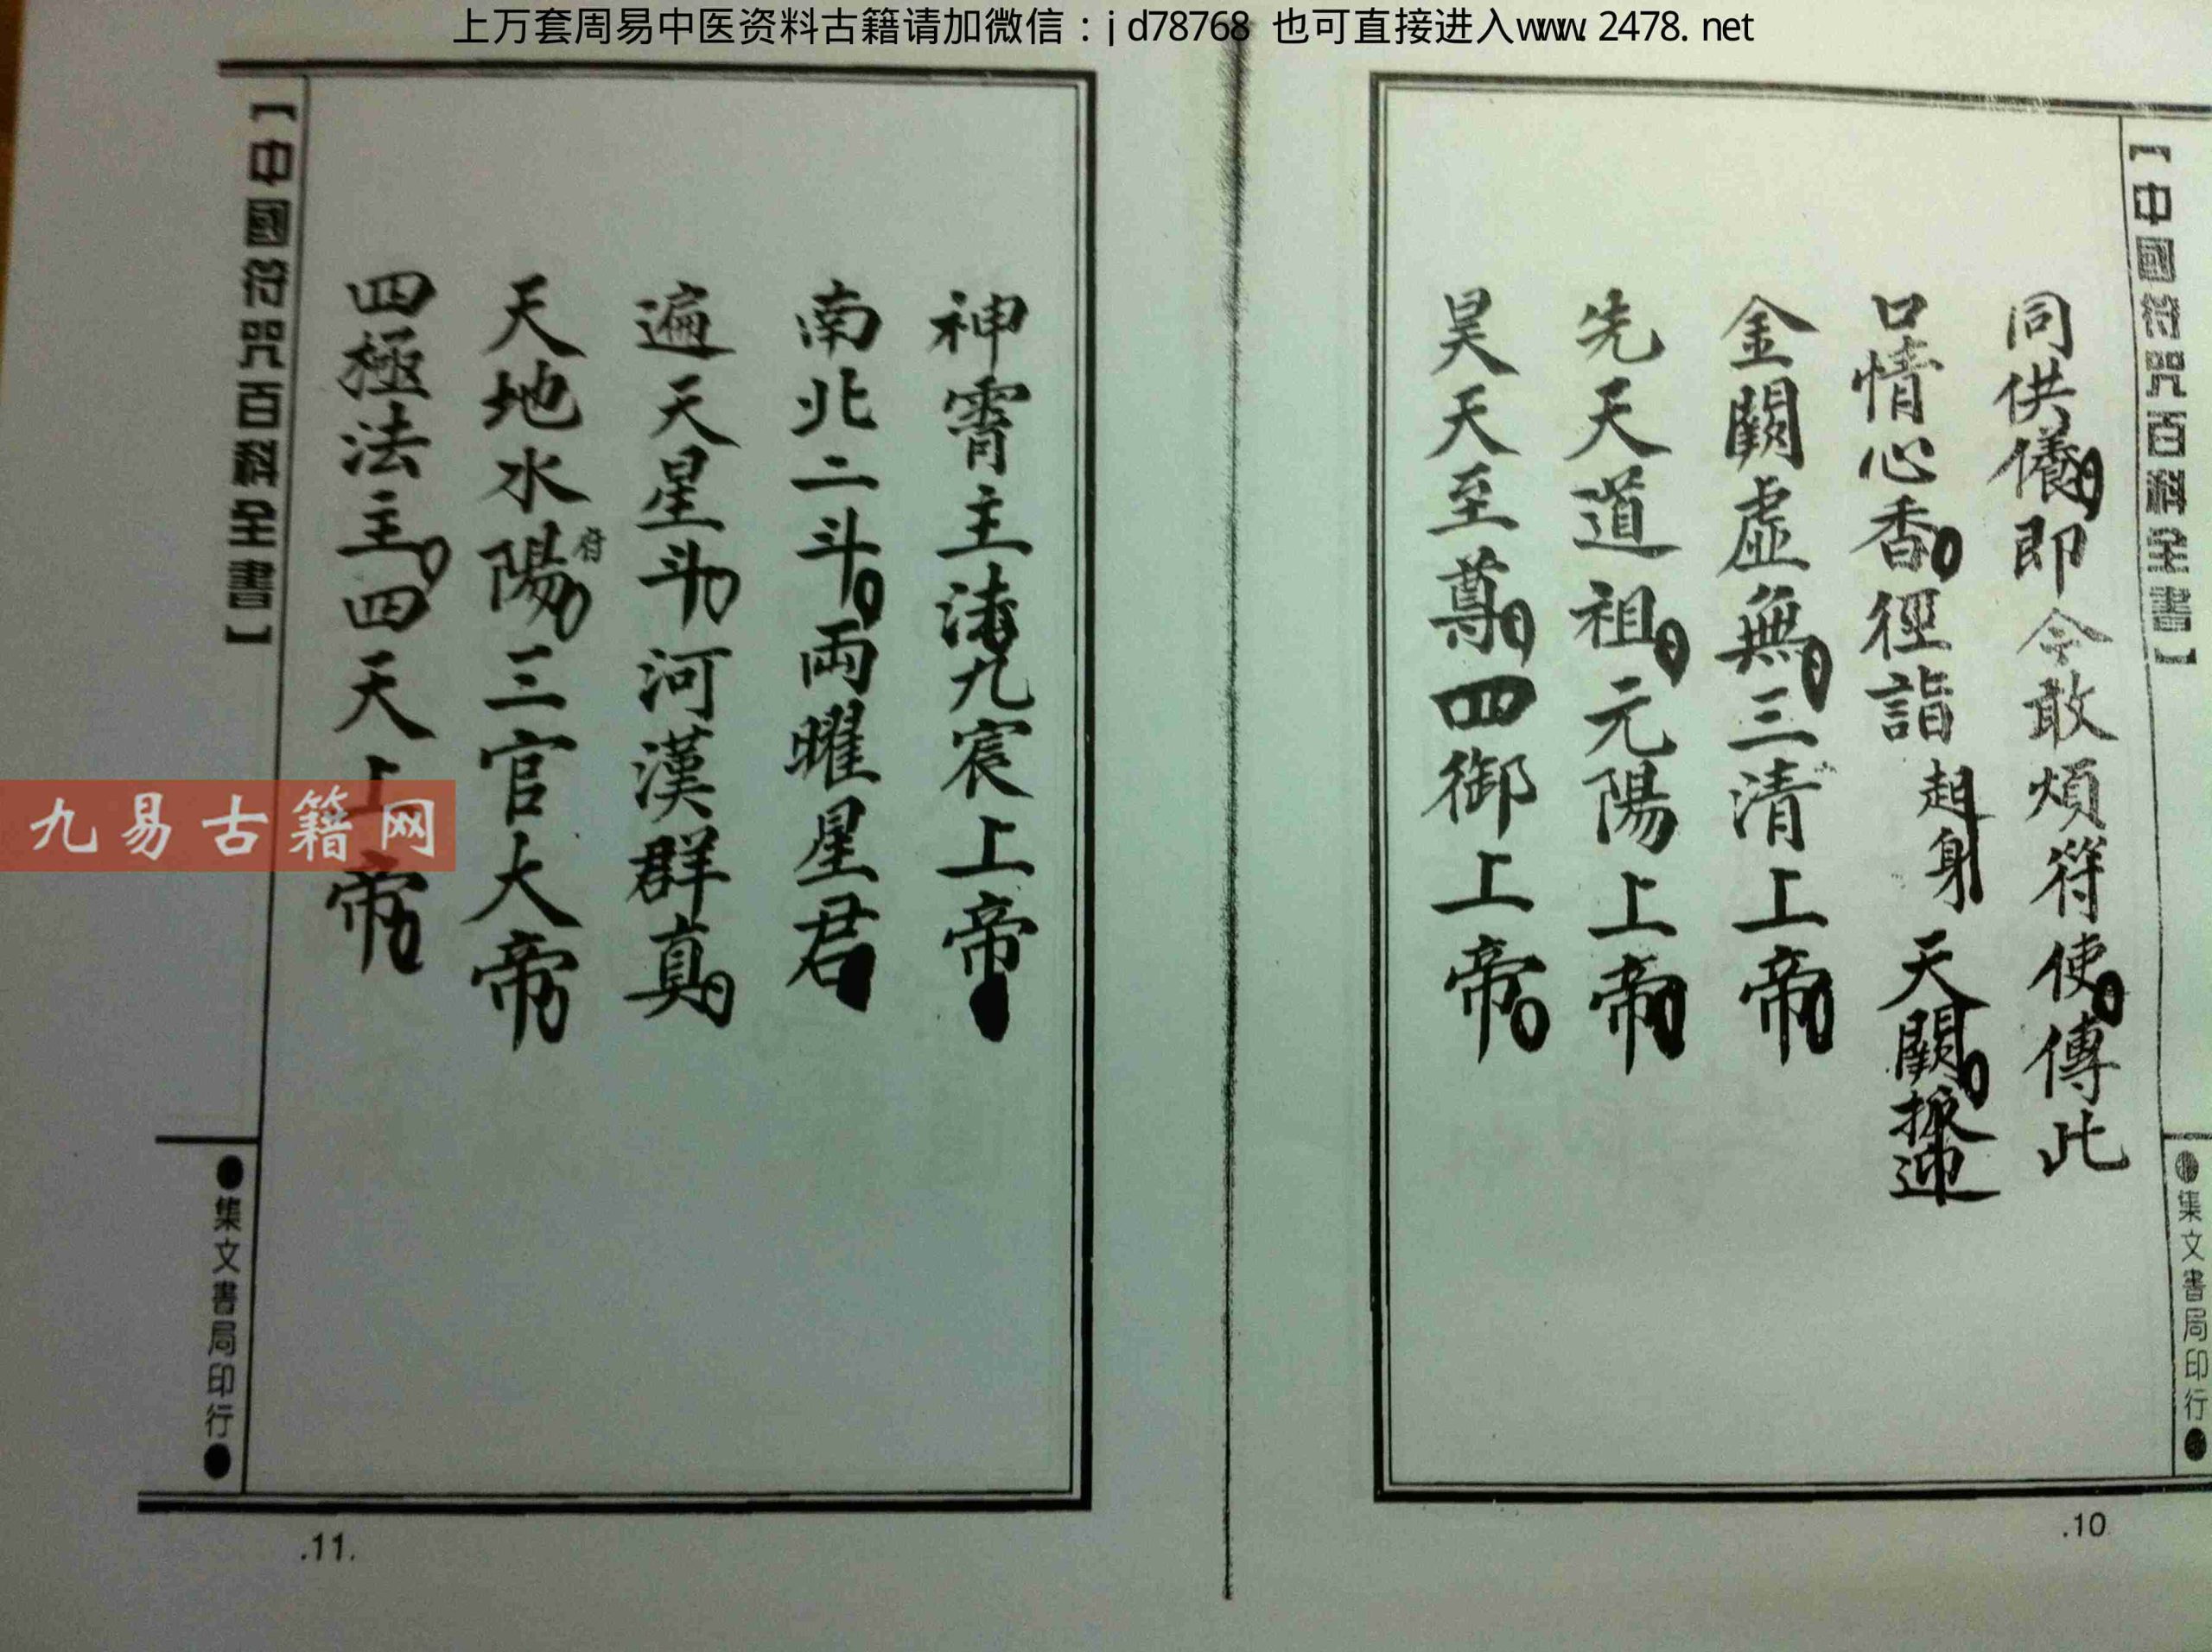 上万套周易中医资料古籍请加微信：jd78768 也可直接进入www.2478.net
【中國符咒百科全書】
同供儀即今敢煩符使傳此
口情心香徑詣 起身 天闕
金闕虛無三清上帝
先天道祖元陽上帝
昊天至尊四御上帝
●集文書局印行●
.10
神霄主法九宸上帝
南北二斗両曜星君
遍天星斗河漢群真
天地水陽三官大帝
府
四極法主四天上帝
【中國符咒百科全書】
●集文書局印行●
.11.
九易古籍网